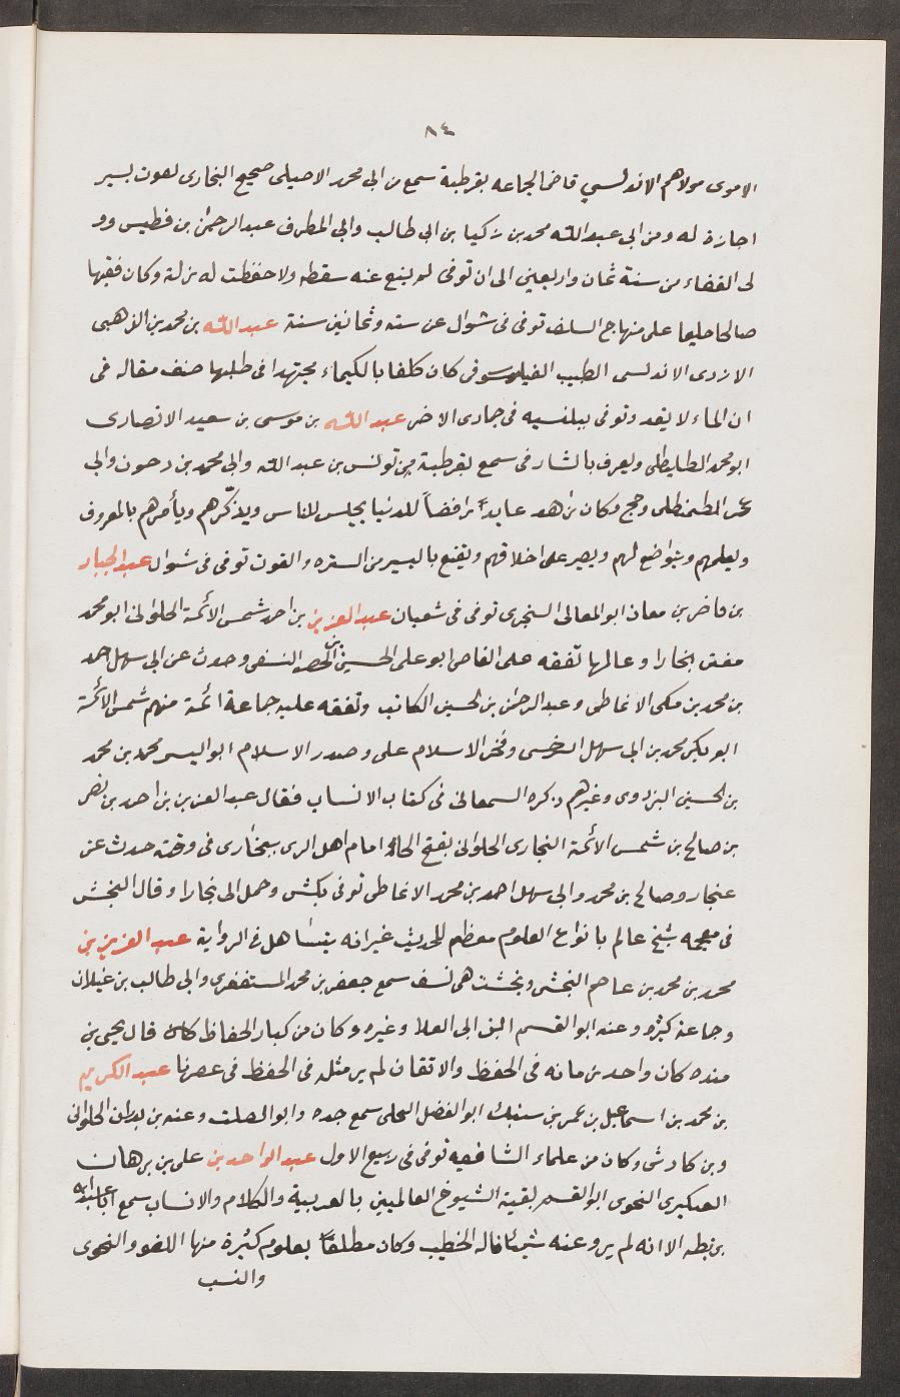 ٨٤
الاموى مولاهم الاندلسي قاضى الجماعه بقرطبة سمع من ابى محمد الاصيلى صحيح البخارى لفوت يسير
اجازة له ومن ابى عبد الله محمد بن زكيا بن ابى طالب وابى المطرف عبد الرحمن بن فطيس وو
لى القضاء من سنة ثمان واربعين الى ان توفى لم ينع عنه سقطه ولا حفظت له زلة وكان فقيها
صالحا حليما على منهاج السلف توفى فى شوال عن سته وثمانين سنة عبد الله بن محمد بن الذهبى
الازدى الاندلسى الطبيب الفيلسوف كان كلفا بالكيماء مجتهدا فى طلبها صنف مقاله فى
ان الماء لا يغد وتوفى ببلنسيه فى جمادى الاخر عبد الله بن موسى بن سعيد الانصارى
ابو محمد الطليطلى ويعرف بالشارفى سمع بقرطبة من تونس بن عبد الله وابى محمد بن دحون وابى
عمر الطلمنطلى وحج وكان زاهدا عابدا رافضاً للدنيا يجلس للناس ويذكّرهم ويأمرهم بالمعروف
ويعلمهم ويتواضع لهم ويصبر على اخلاقهم ويقنع باليسير من السترة والقوت توفى فى شوال عبد الجبار
بن فاخر بن معاذ ابو المعالى السنجرى توفى فى شعبان عبد العزيز بن احمد شمس الائمة الحلوانى ابو محمد
مفتى بخارا وعالمها تفقه على القاضى ابو على الحسين بن الخضر النسفى وحدث عن ابى سهل احمد
بن محمد بن مكى الانماطى وعبد الرحمن بن الحسين الكاتب وتفقه عليه جماعة ائمة منهم شمس الائمة
ابو بكر محمد بن ابى سهل السرخسى وفخر الاسلام على وصدر الاسلام ابو اليسر محمد بن محمد
بن الحسين البزدوى وغيرهم ذكره السمعانى فى كتاب الانساب فقال عبد العزيز بن احمد بن نصر
بن صالح بن شمس الائمة البخارى الحلوانى بفتح الحاء امام اهل الرى ببخارى فى وقته حدث عن
غنجار وصالح بن محمد وابى سهل احمد بن محمد الانماطى توفى بكش وحمل الى بخارا وقال النخشى
فى معجمه شيخ عالم بانواع العلوم معظم للحديث غير انه يتساهل فى الرواية عبد العزيز بن
محمد بن محمد بن عاصم النخشى ونخشب هى نسف سمع جعفر بن محمد المستغفرى وابى طالب بن غيلان
وجماعة كثيره وعنه ابو القسم ابن ابى العلا وغيره وكان من كبار الحفاظ كان قال يحيى بن
منده كان واحد زمانه فى الحفظ والاتقان لم ير مثله فى الحفظ فى عصرنا عبد الكريم
بن محمد بن اسماعيل بن عمر بن سنبك ابو الفضل البجلى سمع جده وابو الصلت وعنه بن بدران الحلوانى
وبن كادش وكان من علماء الشافعيه توفى فى ربيع الاول عبد الواحد بن على بن برهان
العكبرى النحوى ابو القسم بقية الشيوخ العالمين بالعربية والكلام والانساب سمع ابا عبد الله
بن بطه الا انه لم يرو عنه شيئا قاله الخطيب وكان مطلقا بعلوم كثيرة منها اللغو والنحوى
والنسب